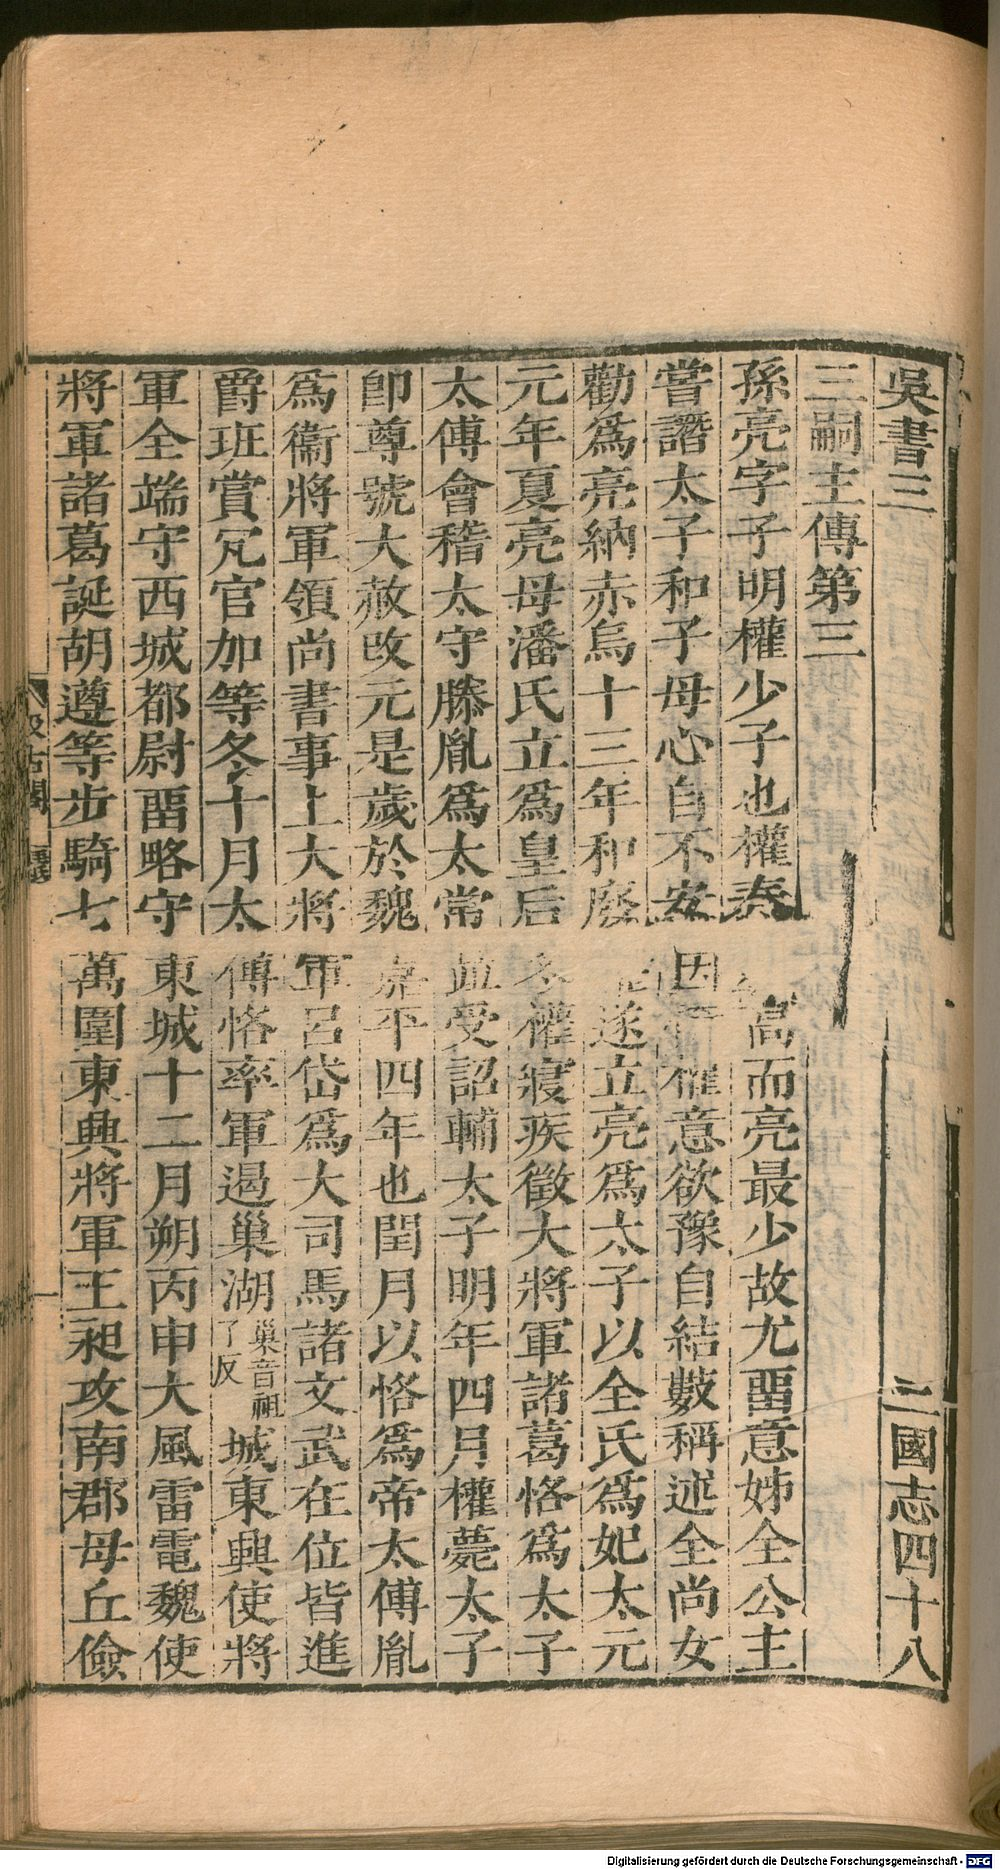 吳書三 三國志四十八
三嗣主傳第三
孫亮字子明權少子也權春高而亮最少故尤畱意姊全公主
嘗譖太子和子母心自不安因權意欲豫自結數稱述全尚女
勸爲亮納赤烏十三年和廢遂立亮爲太子以全氏爲妃太元
元年夏亮母潘氏立爲皇后冬權寢疾徵大將軍諸葛恪爲太子
太傅會稽太守滕胤爲太常並受詔輔太子明年四月權薨太子
卽尊號大赦改元是歲於魏嘉平四年也閏月以恪爲帝太傅胤
爲衞將軍領尚書事上大將軍呂岱爲大司馬諸文武在位皆進
爵班賞冗官加等冬十月太傅恪率軍遏巢湖巢音祖了反城東興使將
軍全端守西城都尉畱略守東城十二月朔丙申大風雷電魏使
將軍諸葛誕胡遵等步騎七萬圍東興將軍王昶攻南郡毋丘儉
汲古閣
Digitalisierung gefördert durch die Deutsche Forschungsgemeinschaft - DFG